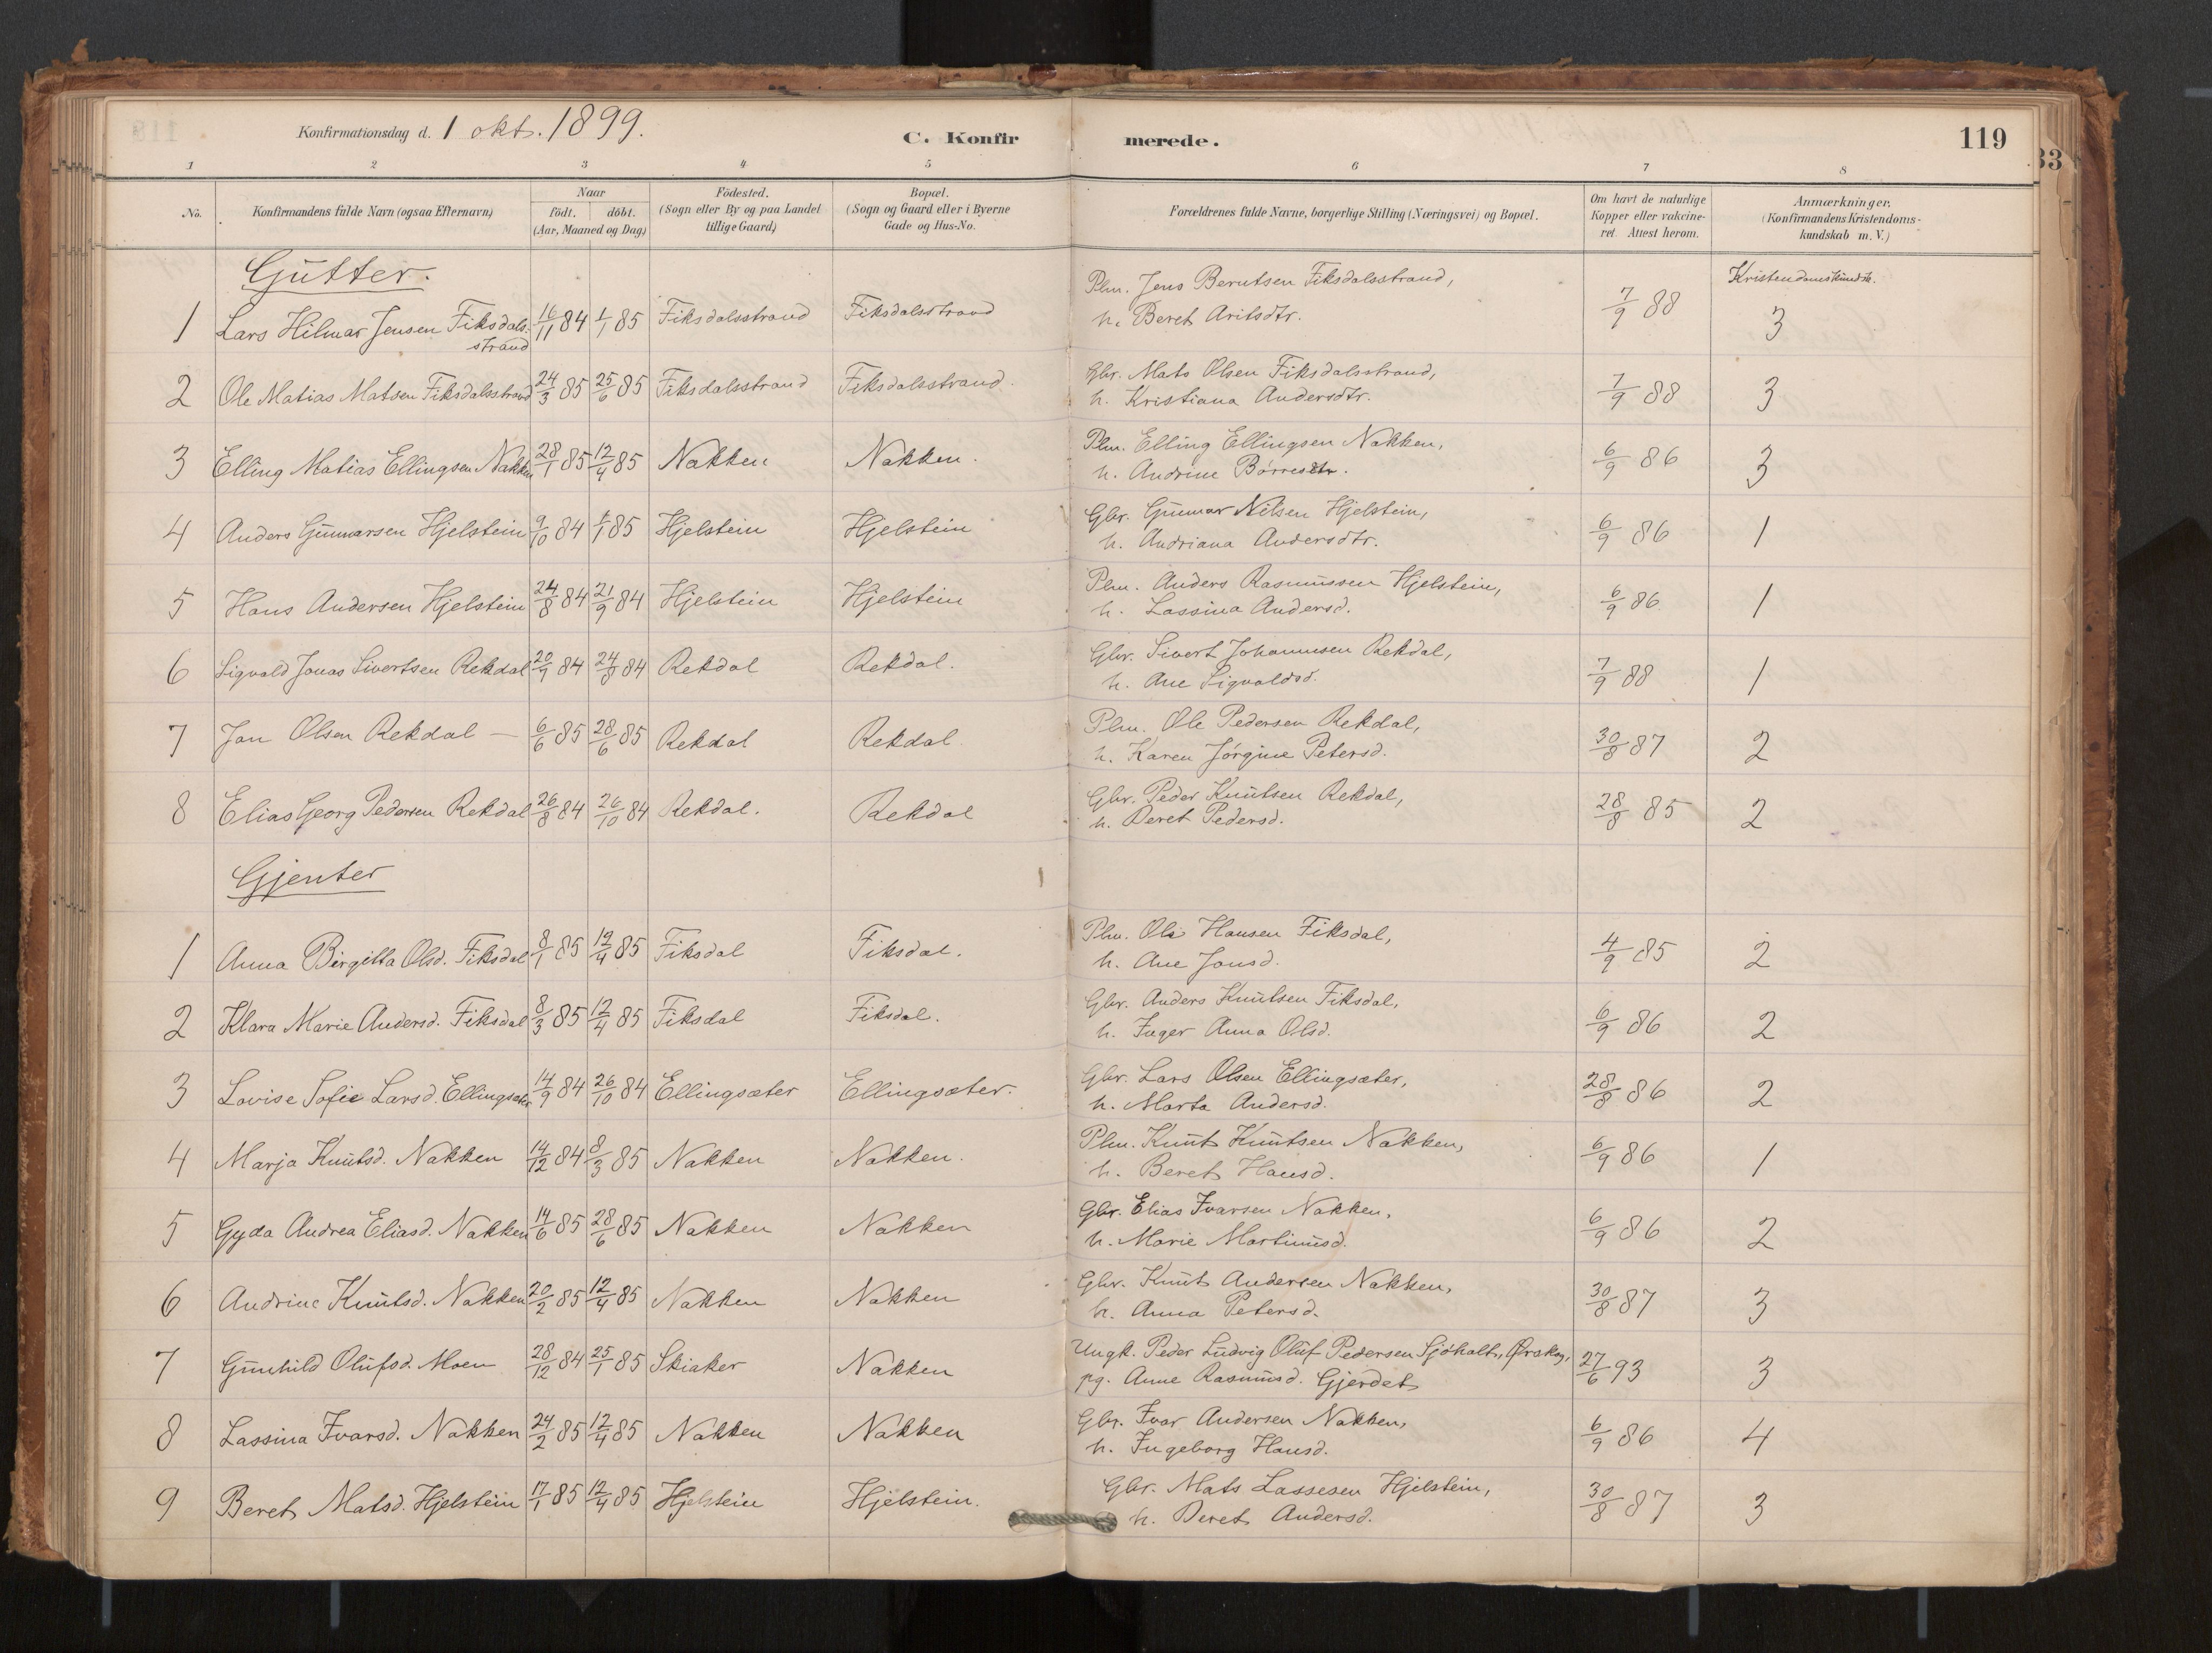 Konfirmationsdag d. 1 okt. 1899.
C. Konfirmerede.
119
33
1 2 3 4 5 6 7 8
No.
Konfirmandens fulde Navn (ogsaa Efternavn)
Naar
födt. döbt.
(Aar, Maaned og Dag)
Födested.
(Sogn eller By og paa Landet
tillige Gaard)
Bopæl.
(Sogn og Gaard eller i Byerne
Gade og Hus-No.
Forældrenes fulde Navne, borgerlige Stilling (Næringsvei) og Bopæl.
Om havt de naturlige
Kopper eller vakcine-
ret. Attest herom.
Anmærkninger.
(Konfirmandens Kristendoms-
kundskab m. V.)
Gutter.
Kristendomskundsk.
1 Lars Hilmar Jensen Fiksdals-
strand 16/11 84 1/1 85 Fiksdalsstrand Fiksdalsstrand Plm. Jens Berntsen Fiksdalsstrand,
h. Beret Aritsdtr. 7/9 88 3
2 Ole Matias Matsen Fiksdalsstrand 24/3 85 25/6 85 Fiksdalsstrand Fiksdalsstrand. Gbr. Mats Olsen Fiksdalsstrand,
h. Kristiana Andersdtr. 7/9 88 3
3 Elling Matias Ellingsen Nakken 28/1 85 12/4 85 Nakken Nakken. Plm. Elling Ellingsen Nakken,
h. Andrine Børresdtr. 6/9 86 3
4 Anders Gunnarsen Hjelstein 9/10 84 1/1 85 Hjelstein Hjelstein Gbr. Gunnar Nilsen Hjelstein,
h. Andriana Andersdtr. 6/9 86 1
5 Hans Andersen Hjelstein 24/8 84 21/9 84 Hjelstein Hjelstein Plm. Anders Rasmussen Hjelstein,
h. Lassina Andersd. 6/9 86 1
6 Sigvald Jonas Sivertsen Rekdal 20/7 84 24/8 84 Rekdal Rekdal. Gbr. Sivert Johannesen Rekdal,
h. Ane Sigvaldsd. 7/9 88 1
7 Jon Olsen Rekdal — 6/6 85 28/6 85 Rekdal Rekdal Plm. Ole Pedersen Rekdal,
h. Karen Jørgine Petersd. 30/8 87 2
8 Elias Georg Pedersen Rekdal 26/8 84 26/10 84 Rekdal. Rekdal Gbr. Peder Knutsen Rekdal,
h. Beret Pedersd. 28/8 85 2
Gjenter
1 Anna Birgitta Olsd. Fiksdal 8/1 85 12/4 85 Fiksdal Fiksdal. Plm. Ole Hansen Fiksdal,
h. Ane Jonsd. 4/9 85 2
2 Klara Marie Andersd. Fiksdal 8/3 85 12/4 85 Fiksdal Fiksdal. Gbr. Anders Knutsen Fiksdal,
h. Inger Anna Olsd. 6/9 86 2
3 Lovise Sofie Larsd. Ellingsæter 14/9 84 26/10 84 Ellingsæter Ellingsæter. Gbr. Lars Olsen Ellingsæter,
h. Marta Andersd. 28/8 86 2
4 Marja Knutsd. Nakken 14/12 84 8/3 85 Nakken Nakken. Plm. Knut Knutsen Nakken,
h. Beret Hansd. 6/9 86 1
5 Gyda Andrea Eliasd. Nakken 14/6 85 28/6 85 Nakken Nakken Gbr. Elias Ivarsen Nakken,
h. Marie Martinusd. 6/9 86 2
6 Andrine Knutsd. Nakken 20/2 85 12/4 85 Nakken Nakken Gbr. Knut Andersen Nakken,
h. Anna Petersd. 30/8 87 3
7 Gunhild Olufsd. Moen 28/12 84 25/1 85 Skiaker Nakken Ungk. Peder Ludvig Oluf Pedersen Sjøholt, Ørskog,
pg. Anne Rasmusd. Gjerdet 27/6 93 3
8 Lassina Ivarsd. Nakken 24/2 85 12/4 85 Nakken Nakken Gbr. Ivar Andersen Nakken,
h. Ingeborg Hansd. 6/9 86 4
9 Beret Matsd. Hjelstein 17/1 85 12/4 85 Hjelstein Hjelstein. Gbr. Mats Lassesen Hjelstein,
h. Beret Andersd. 30/8 87 3